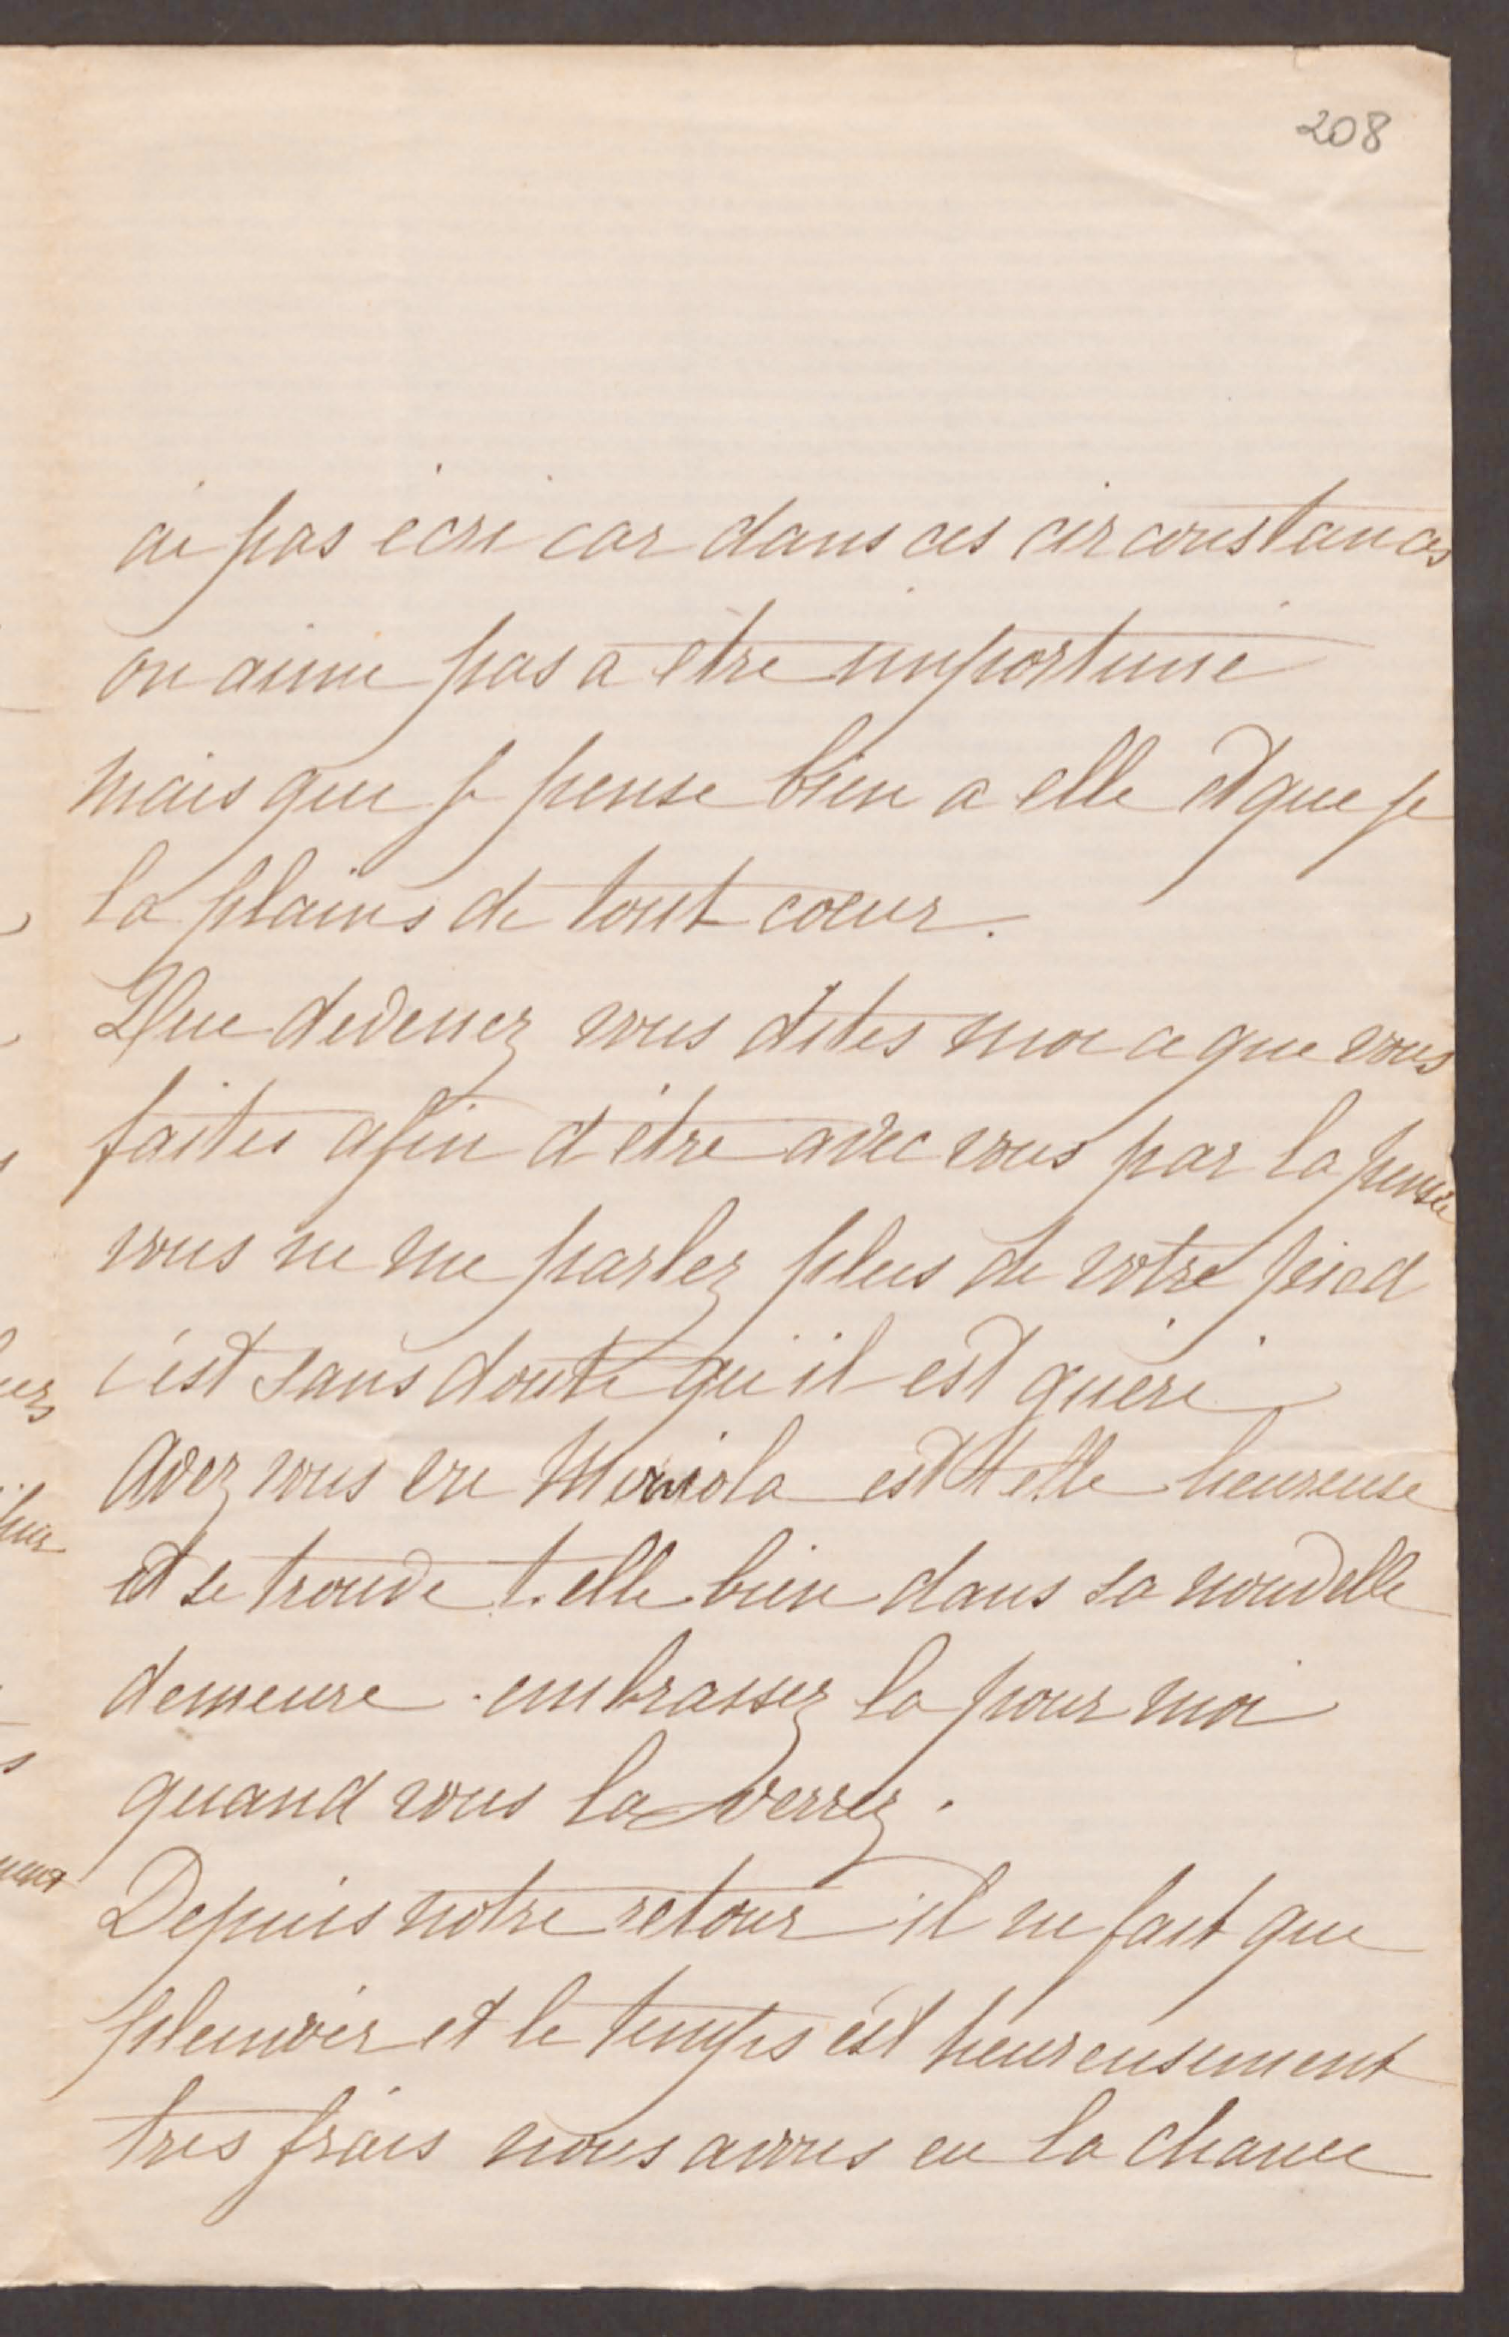 208
ai pas écri car dans ces circonstances
on aime pas a etre importuné
mais que je pense bien a elle et que je
la plains de tout coeur.
Que devenez vous dites moi ce que vous
faites afin d'être avec vous par la pensée
vous ne me parlez plus de votre pied
c'est sans doute qu'il est guéri
avez vous vu est t elle heureuse
et se trouve t.elle bien dans sa nouvelle
demeure. embrassez la pour moi
quand vous la verrez.
Depuis notre retour il ne fait que
pleuvoir et le temps est heureusement
tres frais nous avons eu la chance